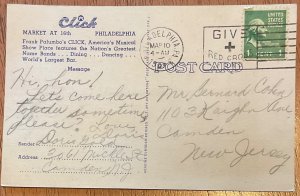 Click
MARKET AT 16th PHILADELPHIA
Frank Palumbo's CLICK, America's Musical
Show Place features the Nation's Greatest
Name Bands . . . Dining . . . Dancing . . .
World's Largest Bar.
Message
Hi, hon!
Let's come here
together sometime
please.
Love
Sender
Address
Camden, N.J.
PHILADELPHIA
MAR 10
4 - AM
GIVE
RED CROSS
1
POST CARD
Mr. Bernard Cohn
1103
Camden
New Jersey